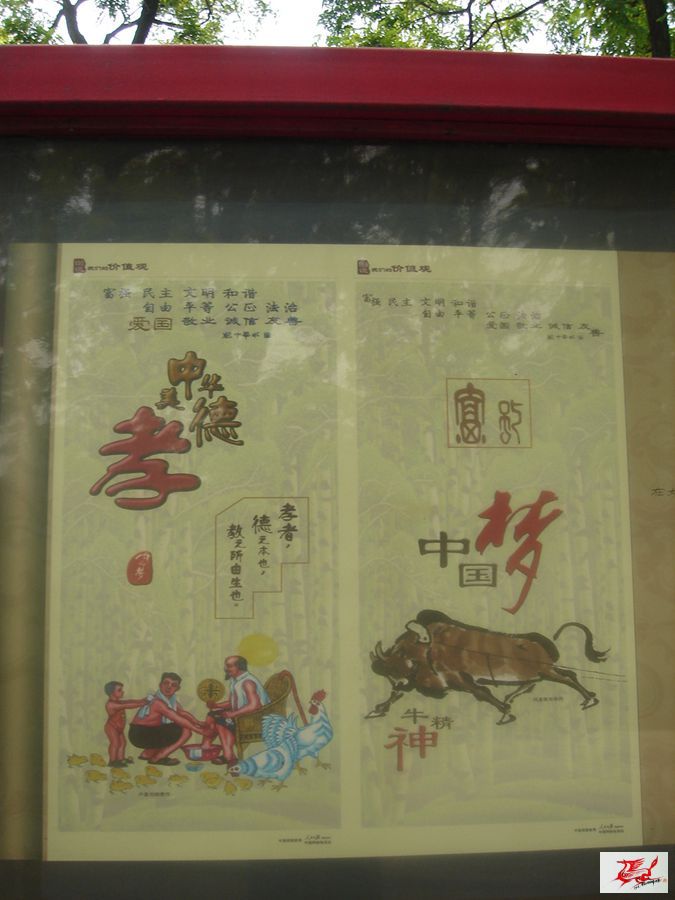 我们的价值观
富强 民主 文明 和谐
自由 平等 公正 法治
爱国 敬业 诚信 友善
中华
美德
孝
孝者，
德之本也，
教之所由生也。
我们的价值观
富强 民主 文明 和谐
自由 平等 公正 法治
爱国 敬业 诚信 友善
富
中国
梦
牛精
神
人民日报
人民日报
在